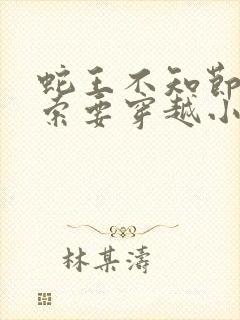 蛇王不知节
索要穿越小
林某涛